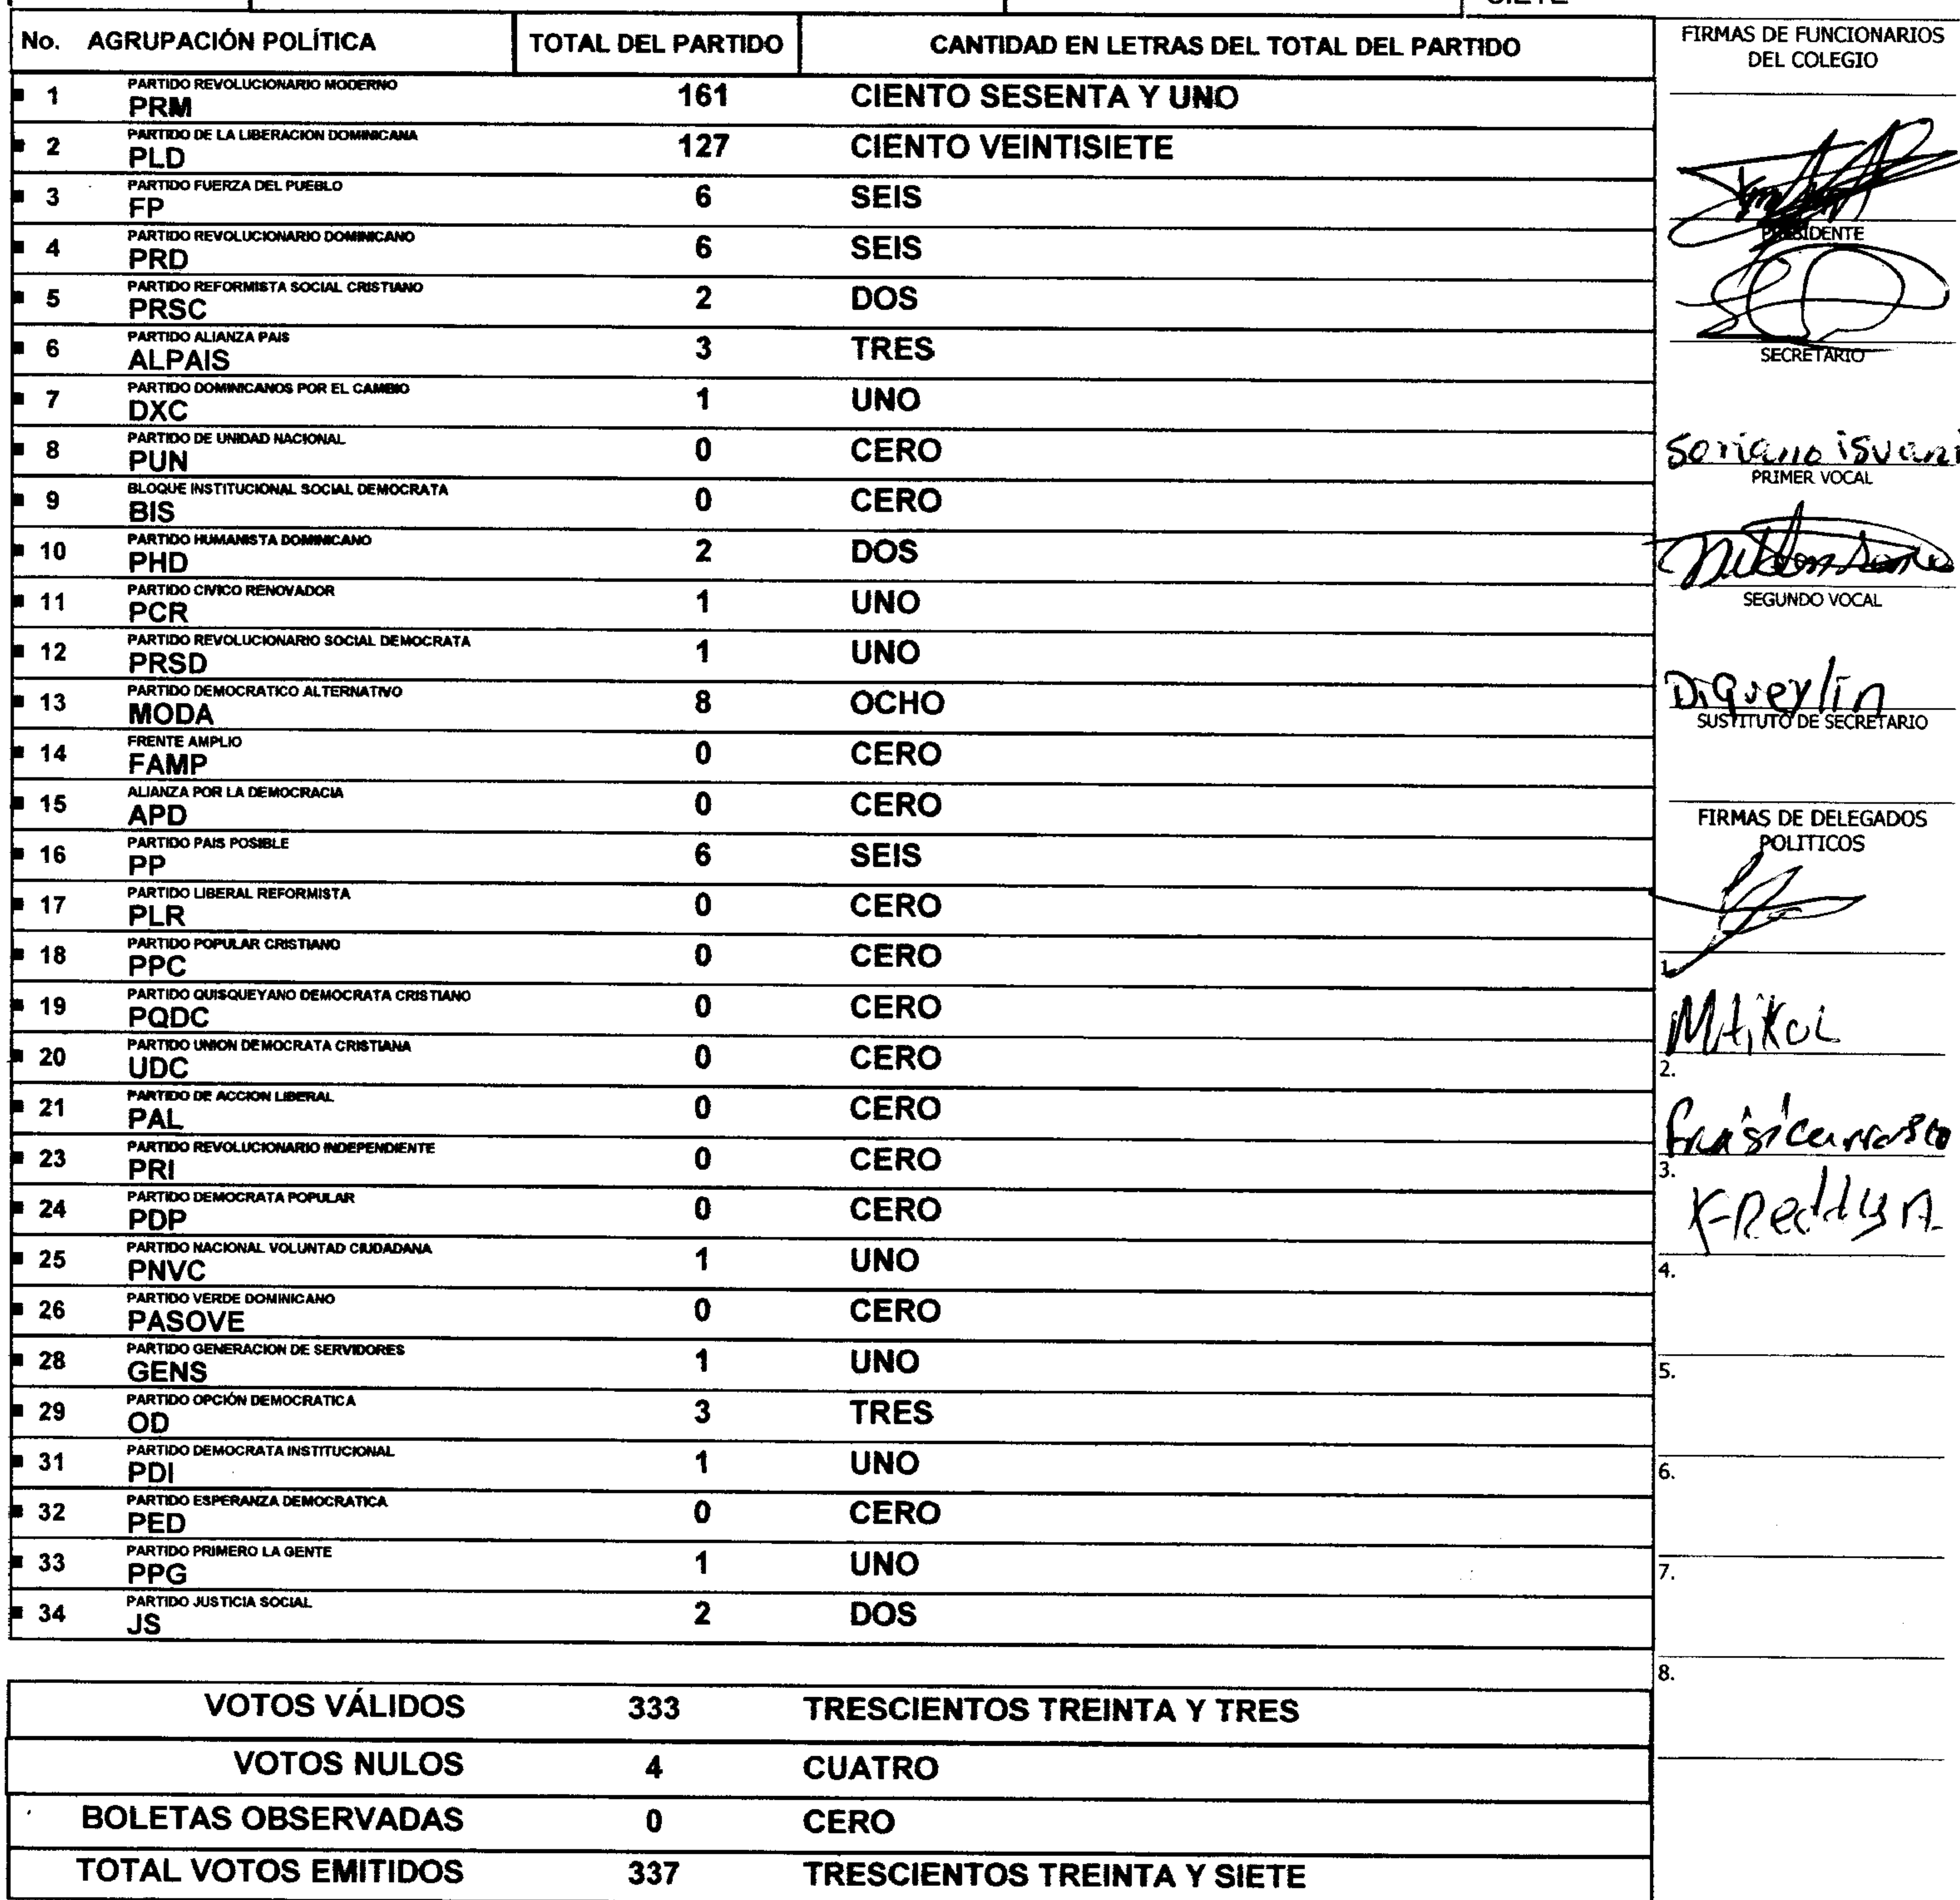 SIETE
No. AGRUPACIÓN POLÍTICA TOTAL DEL PARTIDO CANTIDAD EN LETRAS DEL TOTAL DEL PARTIDO
PARTIDO REVOLUCIONARIO MODERNO
1 PRM 161 CIENTO SESENTA Y UNO
PARTIDO DE LA LIBERACION DOMINICANA
2 PLD 127 CIENTO VEINTISIETE
PARTIDO FUERZA DEL PUEBLO
3 FP 6 SEIS
PARTIDO REVOLUCIONARIO DOMINICANO
4 PRD 6 SEIS
PARTIDO REFORMISTA SOCIAL CRISTIANO
5 PRSC 2 DOS
PARTIDO ALIANZA PAIS
6 ALPAIS 3 TRES
PARTIDO DOMINICANOS POR EL CAMBIO
7 DXC 1 UNO
PARTIDO DE UNIDAD NACIONAL
8 PUN 0 CERO
BLOQUE INSTITUCIONAL SOCIAL DEMOCRATA
9 BIS 0 CERO
PARTIDO HUMANISTA DOMINICANO
10 PHD 2 DOS
PARTIDO CIVICO RENOVADOR
11 PCR 1 UNO
PARTIDO REVOLUCIONARIO SOCIAL DEMOCRATA
12 PRSD 1 UNO
PARTIDO DEMOCRATICO ALTERNATIVO
13 MODA 8 OCHO
FRENTE AMPLIO
14 FAMP 0 CERO
ALIANZA POR LA DEMOCRACIA
15 APD 0 CERO
PARTIDO PAIS POSIBLE
16 PP 6 SEIS
PARTIDO LIBERAL REFORMISTA
17 PLR 0 CERO
PARTIDO POPULAR CRISTIANO
18 PPC 0 CERO
PARTIDO QUISQUEYANO DEMOCRATA CRISTIANO
19 PQDC 0 CERO
PARTIDO UNION DEMOCRATA CRISTIANA
20 UDC 0 CERO
PARTIDO DE ACCION LIBERAL
21 PAL 0 CERO
PARTIDO REVOLUCIONARIO INDEPENDIENTE
23 PRI 0 CERO
PARTIDO DEMOCRATA POPULAR
24 PDP 0 CERO
PARTIDO NACIONAL VOLUNTAD CIUDADANA
25 PNVC 1 UNO
PARTIDO VERDE DOMINICANO
26 PASOVE 0 CERO
PARTIDO GENERACION DE SERVIDORES
28 GENS 1 UNO
PARTIDO OPCIÓN DEMOCRATICA
29 OD 3 TRES
PARTIDO DEMOCRATA INSTITUCIONAL
31 PDI 1 UNO
PARTIDO ESPERANZA DEMOCRATICA
32 PED 0 CERO
PARTIDO PRIMERO LA GENTE
33 PPG 1 UNO
PARTIDO JUSTICIA SOCIAL
34 JS 2 DOS
VOTOS VÁLIDOS 333 TRESCIENTOS TREINTA Y TRES
VOTOS NULOS 4 CUATRO
BOLETAS OBSERVADAS 0 CERO
TOTAL VOTOS EMITIDOS 337 TRESCIENTOS TREINTA Y SIETE
FIRMAS DE FUNCIONARIOS
DEL COLEGIO
PRESIDENTE
SECRETARIO
Soriano isvani
PRIMER VOCAL
SEGUNDO VOCAL
Diqueylin
SUSTITUTO DE SECRETARIO
FIRMAS DE DELEGADOS
POLITICOS
1.
2.
3.
4.
5.
6.
7.
8.